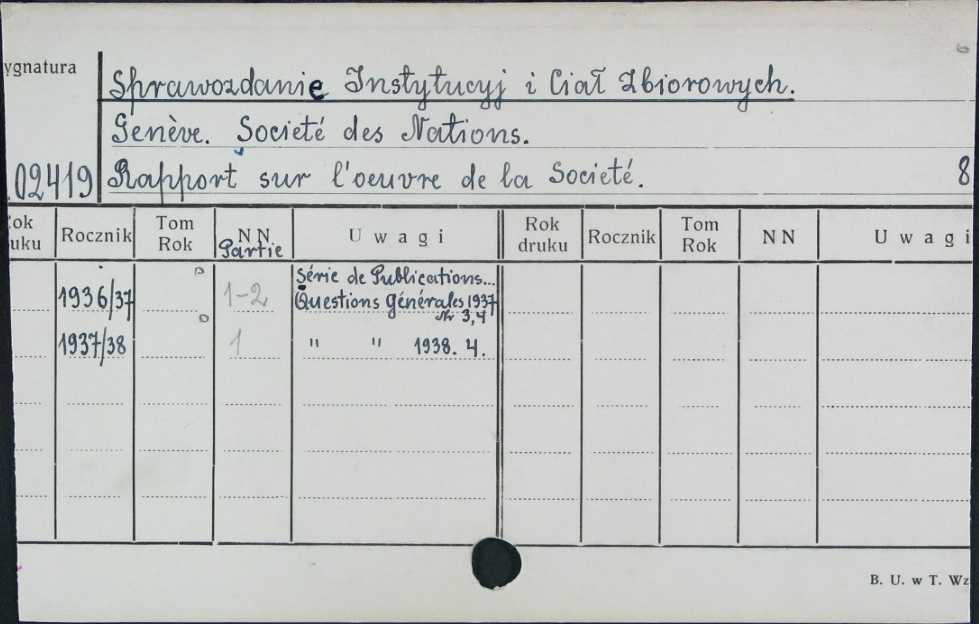 ygnatura
Sprawozdanie Instytucyj i Ciał Zbiorowych.
Genève. Société des Nations.
02419 Rapport sur l'oeuvre de la Société. 8
ok uku Rocznik Tom Rok NN Partie Uwagi Rok druku Rocznik Tom Rok NN Uwagi
Série de Publications...
1936/37 1-2 Questions Générales 1937
Nr 3,4
1937/38 1 " " 1938. 4.
B. U. w T. Wz